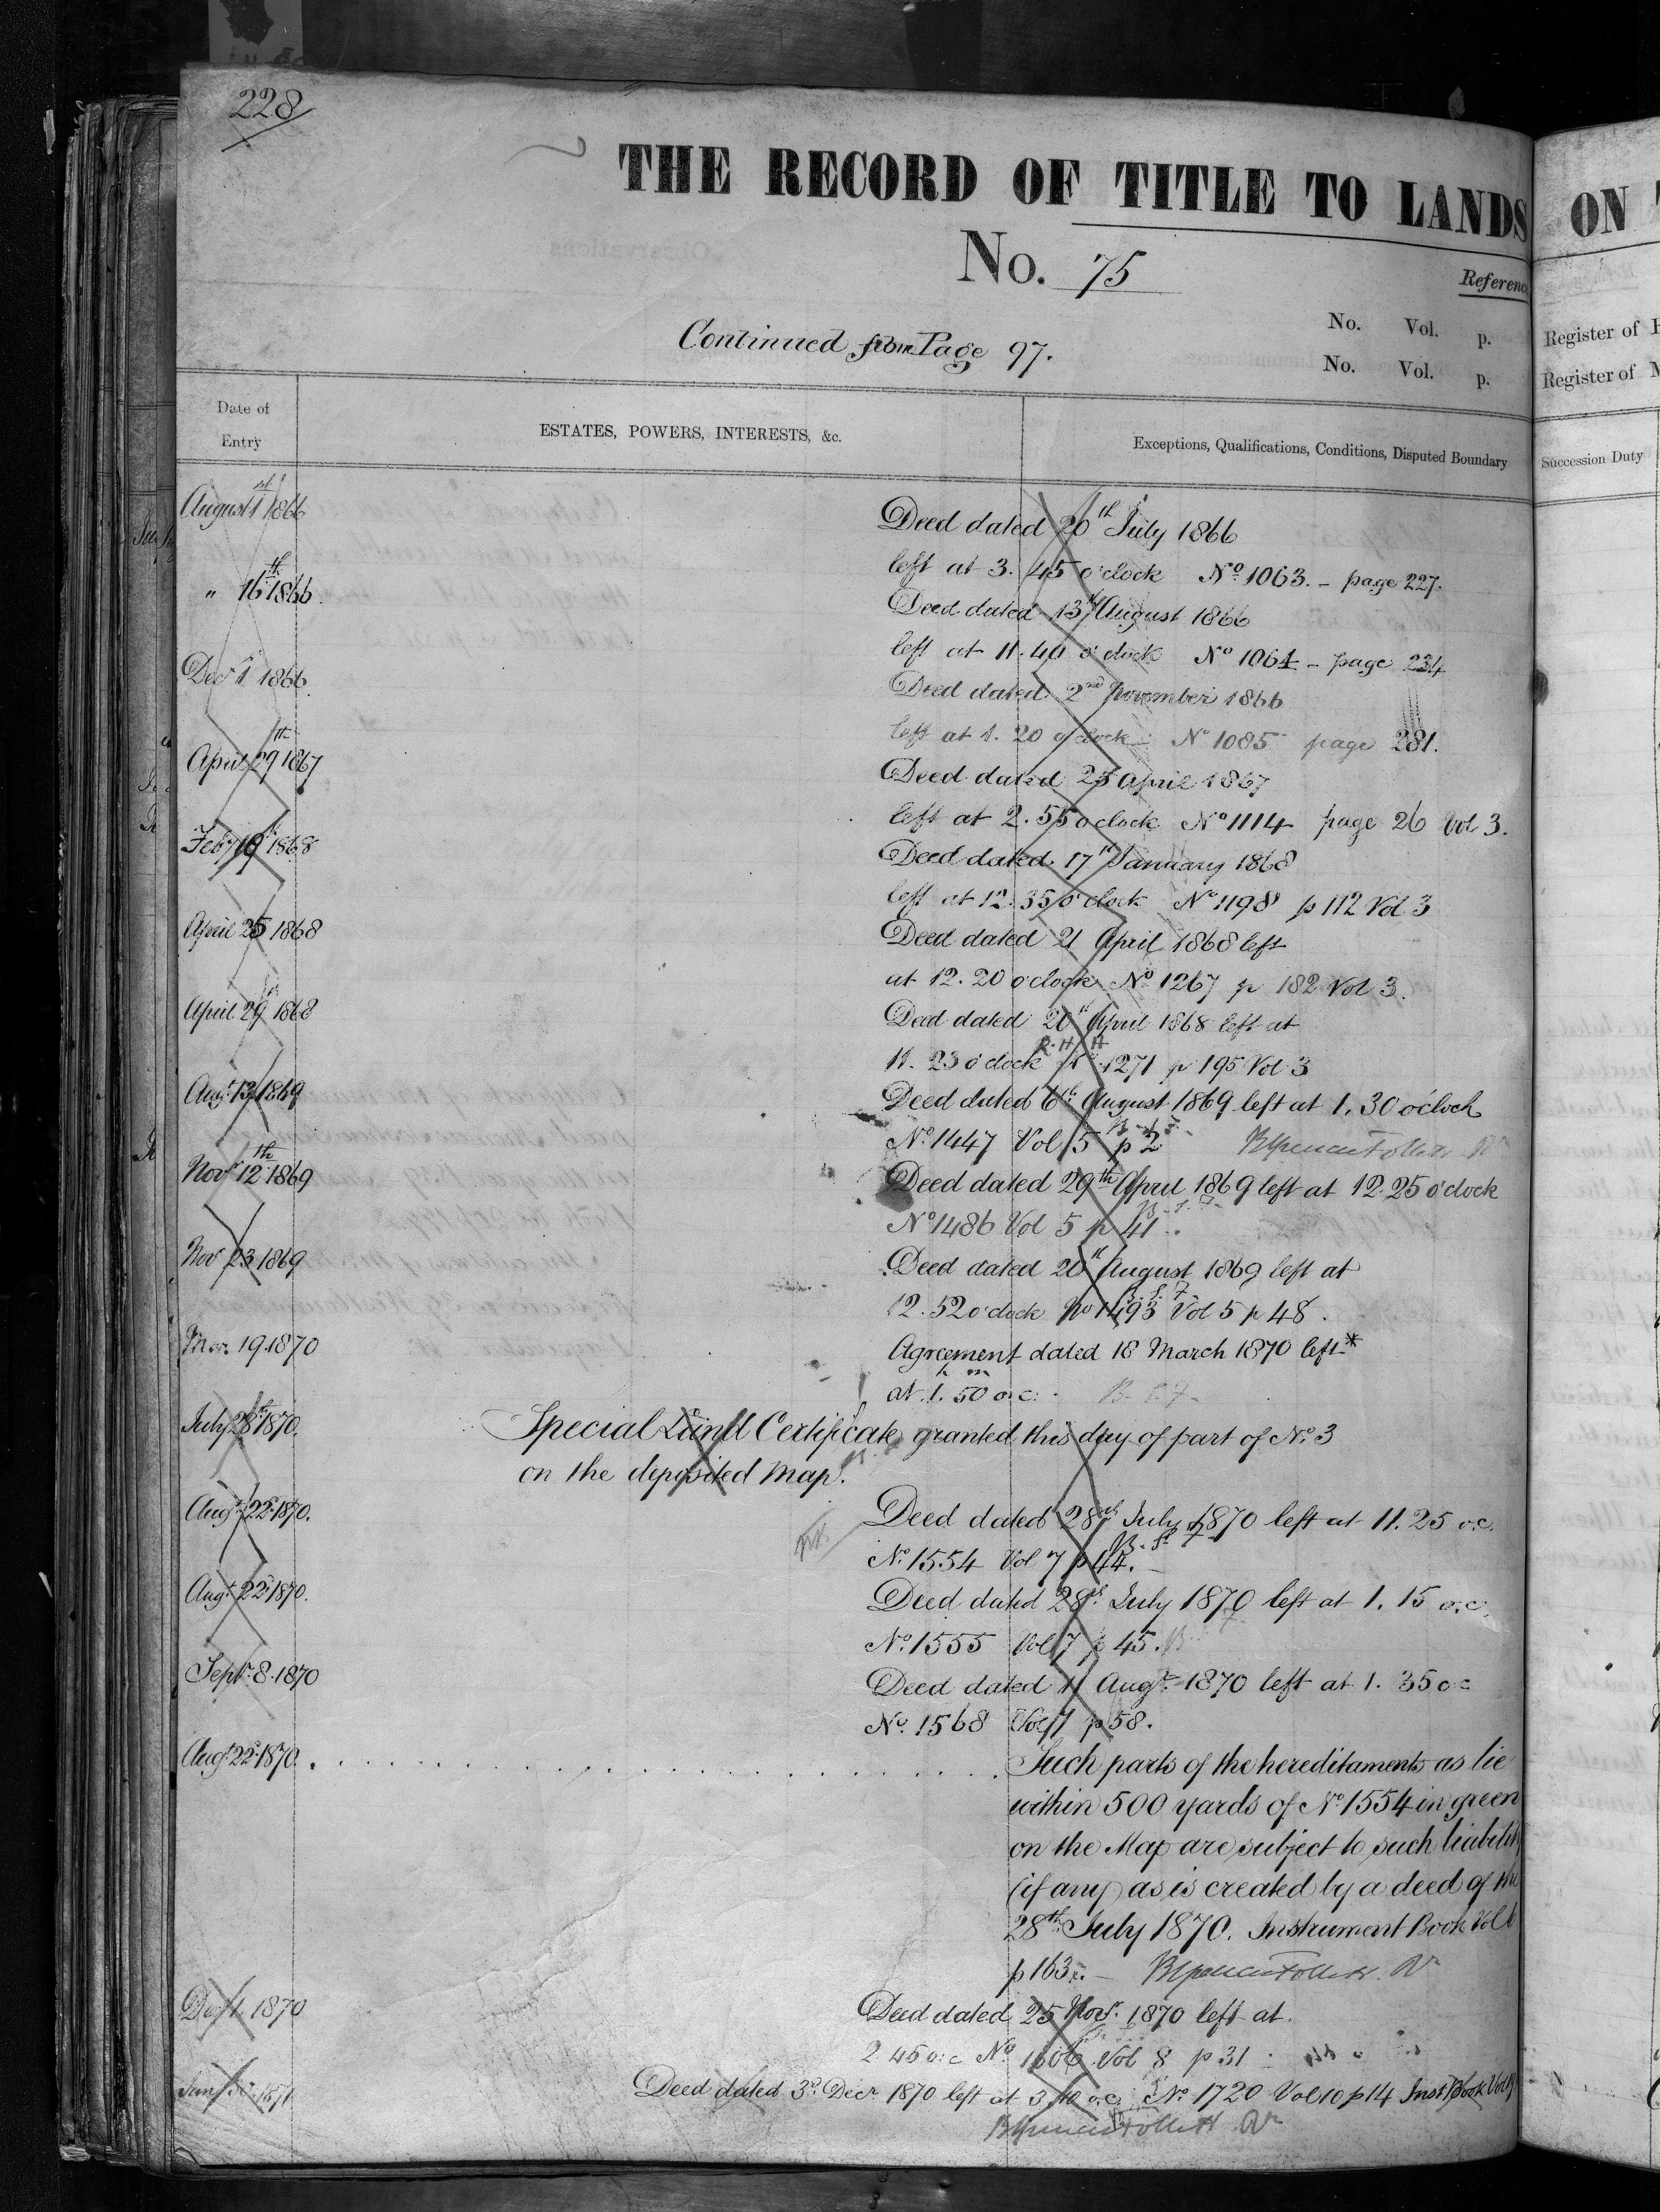 228
THE RECORD OF TITLE TO LANDS
ON
No. 75
Reference
Continued from Page 97.
No. Vol. p.
No. Vol. p.
Register of
Register of
Date of
Entry
ESTATES, POWERS, INTERESTS, &c.
Exceptions, Qualifications, Conditions, Disputed Boundary
Succession Duty
August 1st 1866
Deed dated 20th July 1866
left at 3.45 o'clock No 1063. – page 227.
" 16th 1866.
Deed dated 13th August 1866
left at 11.40 o'clock No 1064 – page 234
Decr 1 1866
Deed dated 2nd November 1866
left at 1.20 o'clock No 1085 page 281.
April 29th 1867
Deed dated 25 April 1867
left at 2.55 o'clock No 1114 page 26 Vol 3.
Feby 19 1868
Deed dated 17th January 1868
left at 12.35 o'clock No 1198 p 112 Vol 3
April 25 1868
Deed dated 21 April 1868 left
at 12.20 o'clock No 1267 p 182 Vol 3.
April 29 1868
Deed dated 20th April 1868 left at
R.H H
11.23 o'clock No 1271 p 195 Vol 3
Augt 13 1869
Deed dated 6th August 1869 left at 1.30 o'clock
No 1447 Vol 5 p 2
Novr 12th 1869
Deed dated 29th April 1869 left at 12.25 o'clock
No 1486 Vol 5 p 41.
Novr 23 1869
Deed dated 20th August 1869 left at
12.52 o'clock No 1493 Vol 5 p 48.
Mar. 19.1870
Agreement dated 18 March 1870 left*
at 1h.50m o.c. B.S.F.
July 28th 1870.
Special Land Certificate granted this day of part of No. 3
on the deposited Map.
Augt 22d 1870.
Deed dated 28th July 1870 left at 11.25 o.c.
No. 1554 Vol 7 p 44.
Augt 22d 1870.
Deed dated 28th July 1870 left at 1.15 o.c.
No. 1555 Vol 7 p 45.
Septr. 8. 1870
Deed dated 11 Augt. 1870 left at 1.35 o c
No. 1568 Vol 7 p 58.
Augt 22d 1870.
Such parts of the hereditaments as lie
within 500 yards of No. 1554 in green
on the Map are subject to such liability
(if any) as is created by a deed of the
28th July 1870. Instrument Book Vol 6
p 163.
Decr 1. 1870
Deed dated 25 Novr. 1870 left at.
2 45 o.c No. 1606 Vol 8 p 31
Jany 30. 1871
Deed dated 3d. Decr 1870 left at 3.10 o.c. No. 1720 Vol 10 p 14 Inst Book Vol